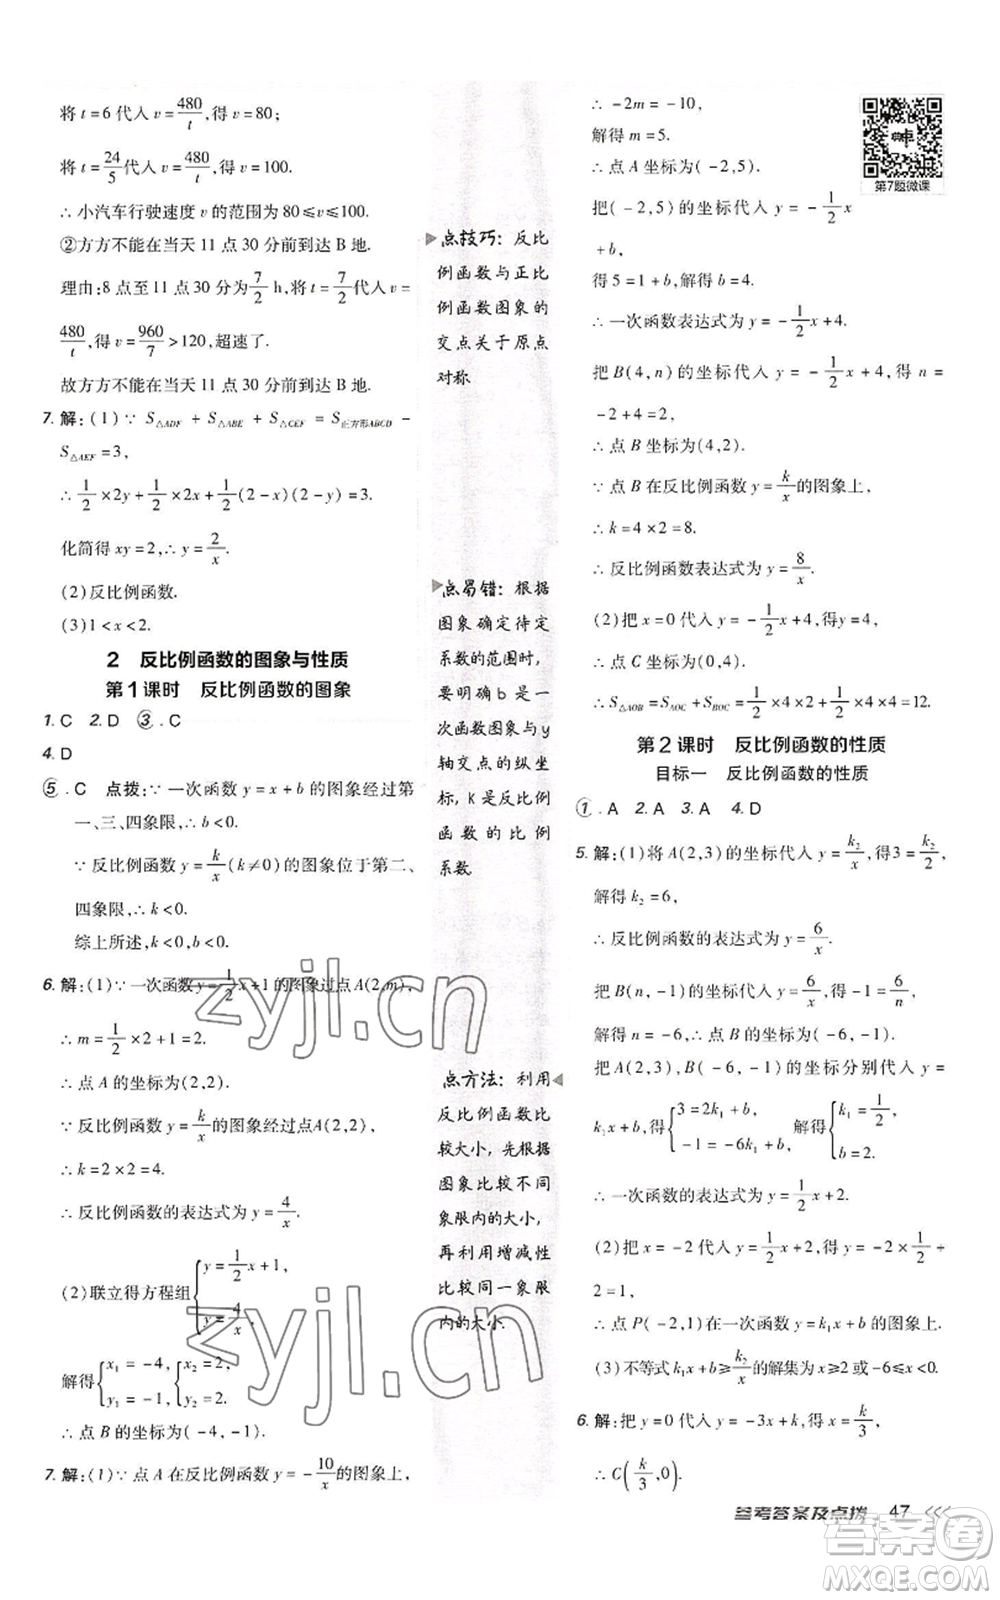 将 t=6代入 v=480/t,得 v=80;
将 t=24/5代入 v=480/t,得 v=100.
∴ 小汽车行驶速度 v 的范围为 80≤v≤100.
②方方不能在当天 11 点 30 分前到达 B 地.
理由:8 点至 11 点 30 分为7/2 h,将 t=7/2代入 v=
480/t,得 v=960/7>120,超速了.
故方方不能在当天 11 点 30 分前到达 B 地.
7. 解:(1)∵ S△ADF + S△ABE + S△CEF = S正方形ABCD −
S△AEF=3,
∴ 1/2×2y+1/2×2x+1/2(2−x)(2−y)=3.
化简得 xy=2,∴ y=2/x.
(2)反比例函数.
(3)1<x<2.
2 反比例函数的图象与性质
第1课时 反比例函数的图象
1. C 2. D ③. C
4. D
⑤. C 点拨:∵ 一次函数 y=x+b 的图象经过第
一、三、四象限,∴ b<0.
∵ 反比例函数 y=k/x(k≠0)的图象位于第二、
四象限,∴ k<0.
综上所述,k<0,b<0.
6. 解:(1)∵ 一次函数 y=1/2x+1的图象过点A(2,m),
∴ m=1/2×2+1=2.
∴ 点 A 的坐标为(2,2).
∵ 反比例函数 y=k/x的图象经过点A(2,2),
∴ k=2×2=4.
∴ 反比例函数的表达式为 y=4/x.
(2)联立得方程组{y=1/2x+1,
y=4/x.
解得{x₁=−4, {x₂=2,
y₁=−1, y₂=2.
∴ 点 B 的坐标为(−4,−1).
7. 解:(1)∵ 点 A 在反比例函数 y=−10/x的图象上,
点技巧:反比
例函数与正比
例函数图象的
交点关于原点
对称
点易错:根据
图象确定待定
系数的范围时,
要明确 b 是一
次函数图象与y
轴交点的纵坐
标,k是反比例
函数的比例
系数
点方法:利用
反比例函数比
较大小,先根据
图象比较不同
象限内的大小,
再利用增减性
比较同一象限
内的大小.
∴ −2m=−10,
解得 m=5.
∴ 点 A 坐标为(−2,5).
第7题微课
把(−2,5)的坐标代入 y=−1/2x
+b,
得 5=1+b,解得 b=4.
∴ 一次函数表达式为 y=−1/2x+4.
把 B(4,n)的坐标代入 y=−1/2x+4,得 n=
−2+4=2.
∴ 点 B 坐标为(4,2).
∵ 点 B 在反比例函数 y=k/x的图象上,
∴ k=4×2=8.
∴ 反比例函数表达式为 y=8/x.
(2)把 x=0 代入 y=−1/2x+4,得y=4,
∴ 点 C 坐标为(0,4).
∴ S△AOB=S△AOC+S△BOC=1/2×4×2+1/2×4×4=12.
第2课时 反比例函数的性质
目标一 反比例函数的性质
①. A 2. A 3. A 4. D
5. 解:(1)将 A(2,3)的坐标代入 y=k₂/x,得3=k₂/2,
解得 k₂=6,
∴ 反比例函数的表达式为 y=6/x.
把 B(n,−1)的坐标代入 y=6/x,得 −1=6/n,
解得 n=−6,∴ 点 B 的坐标为(−6,−1).
把 A(2,3),B(−6,−1)的坐标分别代入 y=
k₁x+b,得{3=2k₁+b, 解得{k₁=1/2,
−1=−6k₁+b, b=2.
∴ 一次函数的表达式为 y=1/2x+2.
(2)把 x=−2 代入 y=1/2x+2,得 y=−2×1/2+
2=1,
∴ 点 P(−2,1)在一次函数 y=k₁x+b 的图象上.
(3)不等式k₁x+b≥k₂/x的解集为x≥2或−6≤x<0.
6. 解:把 y=0 代入 y=−3x+k,得 x=k/3,
∴ C(k/3,0).
参考答案及点拨 47
zyjl.cn
zyjl.cn
答案圈
MXQE.COM